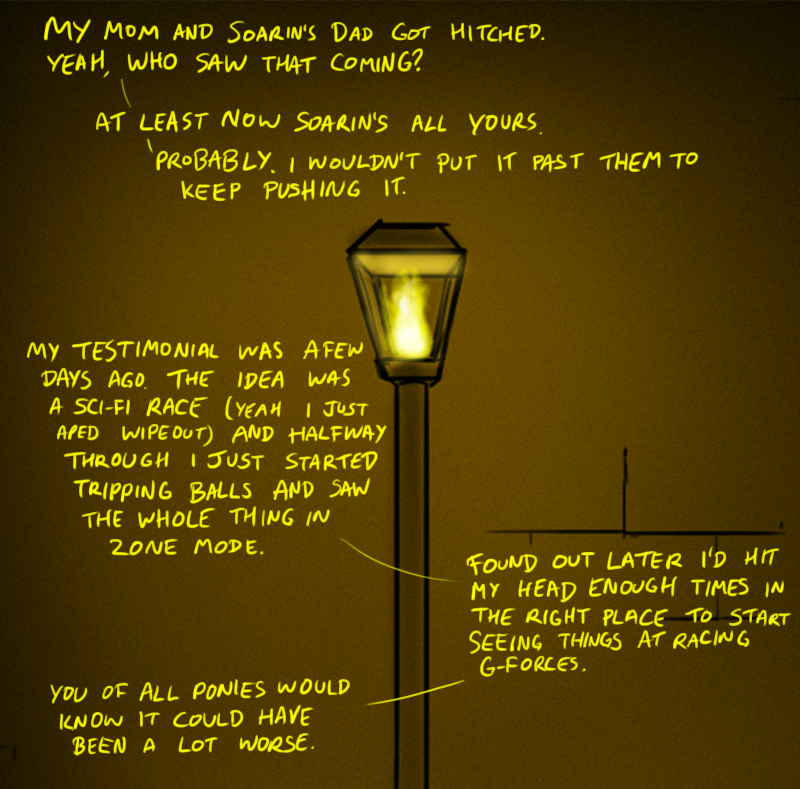 MY MOM AND SOARIN'S DAD GOT HITCHED.
YEAH, WHO SAW THAT COMING?
AT LEAST NOW SOARIN'S ALL YOURS.
PROBABLY. I WOULDN'T PUT IT PAST THEM TO
KEEP PUSHING IT.
MY TESTIMONIAL WAS A FEW
DAYS AGO. THE IDEA WAS
A SCI-FI RACE (YEAH I JUST
APED WIPEOUT) AND HALFWAY
THROUGH I JUST STARTED
TRIPPING BALLS AND SAW
THE WHOLE THING IN
ZONE MODE.
FOUND OUT LATER I'D HIT
MY HEAD ENOUGH TIMES IN
THE RIGHT PLACE TO START
SEEING THINGS AT RACING
G-FORCES.
YOU OF ALL PONIES WOULD
KNOW IT COULD HAVE
BEEN A LOT WORSE.